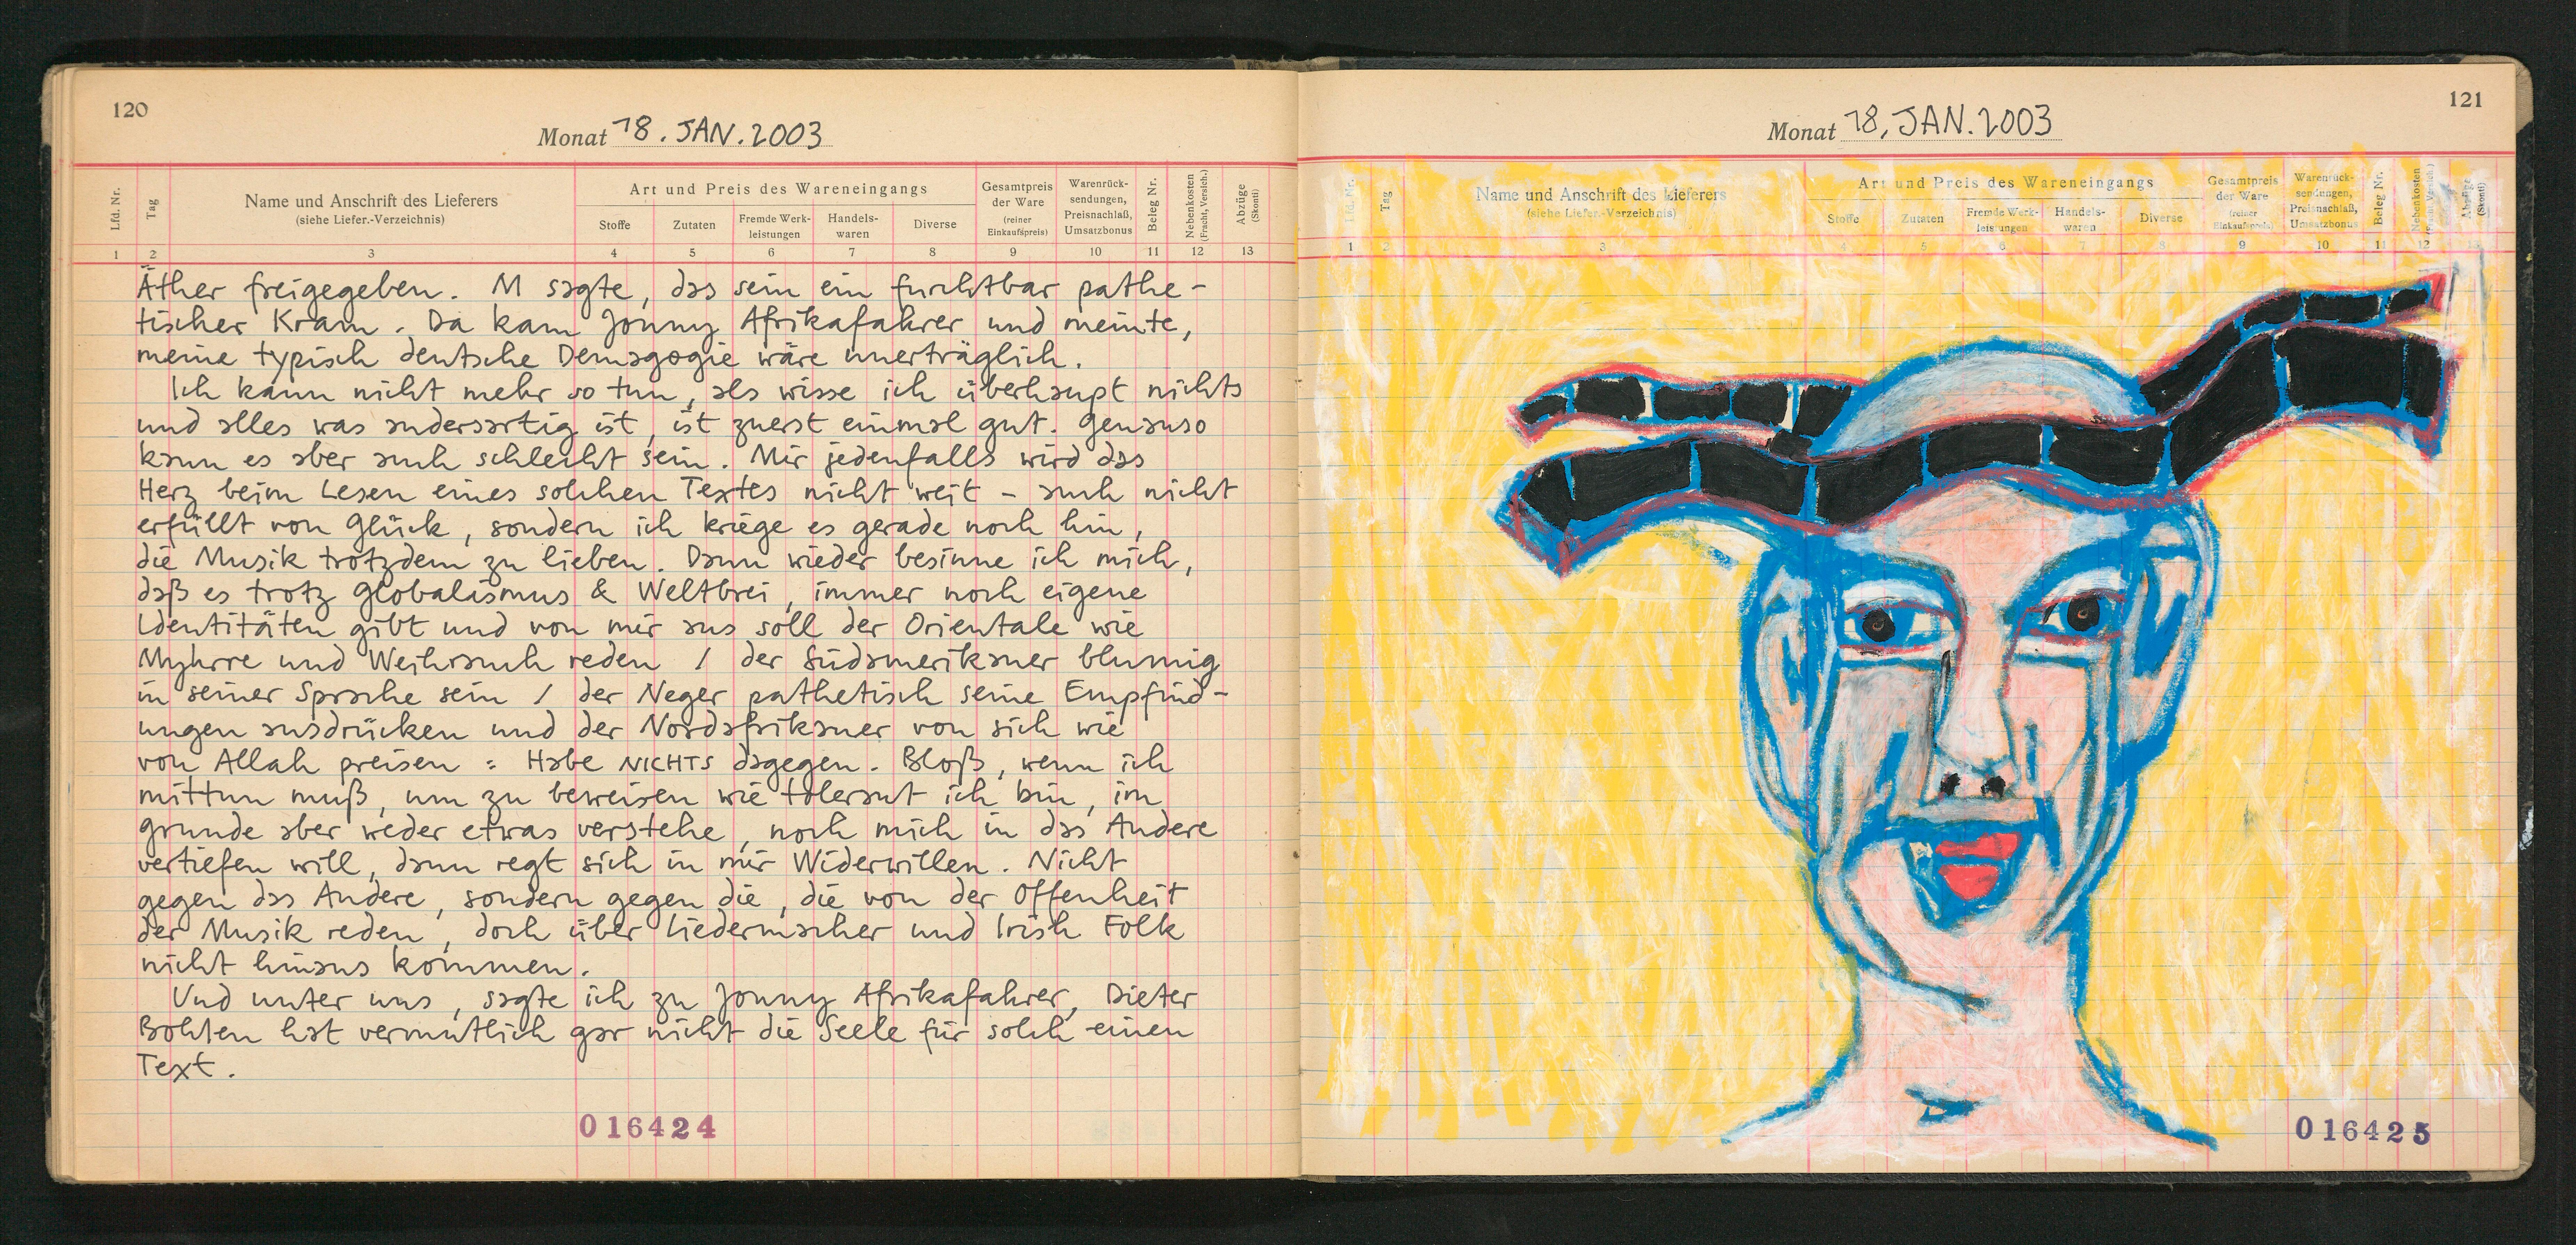 120
Monat 18. JAN. 2003
Lfd. Nr.
Tag
Name und Anschrift des Lieferers
(siehe Liefer.-Verzeichnis)
Art und Preis des Wareneingangs
Stoffe
Zutaten
Fremde Werk-
leistungen
Handels-
waren
Diverse
Gesamtpreis
der Ware
(reiner
Einkaufspreis)
Warenrück-
sendungen,
Preisnachlaß,
Umsatzbonus
Beleg Nr.
Nebenkosten
(Fracht, Versich.)
Abzüge
(Skonti)
1 2 3 4 5 6 7 8 9 10 11 12 13
Äther freigegeben. M sagte, das sein ein furchtbar pathe-
tischer Kram. Da kam Jonny Afrikafahrer und meinte,
meine typisch deutsche Demagogie wäre unerträglich.
Ich kann nicht mehr so tun, als wisse ich überhaupt nichts
und alles was andersartig ist, ist zuerst einmal gut. Genauso
kann es aber auch schlecht sein. Mir jedenfalls wird das
Herz beim Lesen eines solchen Textes nicht weit - auch nicht
erfüllt von Glück, sondern ich kriege es gerade noch hin,
die Musik trotzdem zu lieben. Dann wieder besinne ich mich,
daß es trotz Globalismus & Weltbrei, immer noch eigene
Identitäten gibt und von mir aus soll der Orientale wie
Myhrre und Weihrauch reden / der Südamerikaner blumig
in seiner Sprache sein / der Neger pathetisch seine Empfind-
ungen ausdrücken und der Nordafrikaner von sich wie
von Allah preisen = Habe NICHTS dagegen. Bloß, wenn ich
mittun muß, um zu beweisen wie tolerant ich bin, im
Grunde aber weder etwas verstehe, noch mich in das Andere
vertiefen will, dann regt sich in mir Widerwillen. Nicht
gegen das Andere, sondern gegen die, die von der Offenheit
der Musik reden, doch über Liedermacher und Irish Folk
nicht hinaus kommen.
Und unter uns, sagte ich zu Jonny Afrikafahrer, Dieter
Bohlen hat vermutlich gar nicht die Seele für solch einen
Text.
016424
121
Monat 18. JAN. 2003
Lfd. Nr.
Tag
Name und Anschrift des Lieferers
(siehe Liefer.-Verzeichnis)
Art und Preis des Wareneingangs
Stoffe
Zutaten
Fremde Werk-
leistungen
Handels-
waren
Diverse
Gesamtpreis
der Ware
(reiner
Einkaufspreis)
Warenrück-
sendungen,
Preisnachlaß,
Umsatzbonus
Beleg Nr.
Nebenkosten
(Fracht, Versich.)
Abzüge
(Skonti)
1 2 3 4 5 6 7 8 9 10 11 12 13
016425